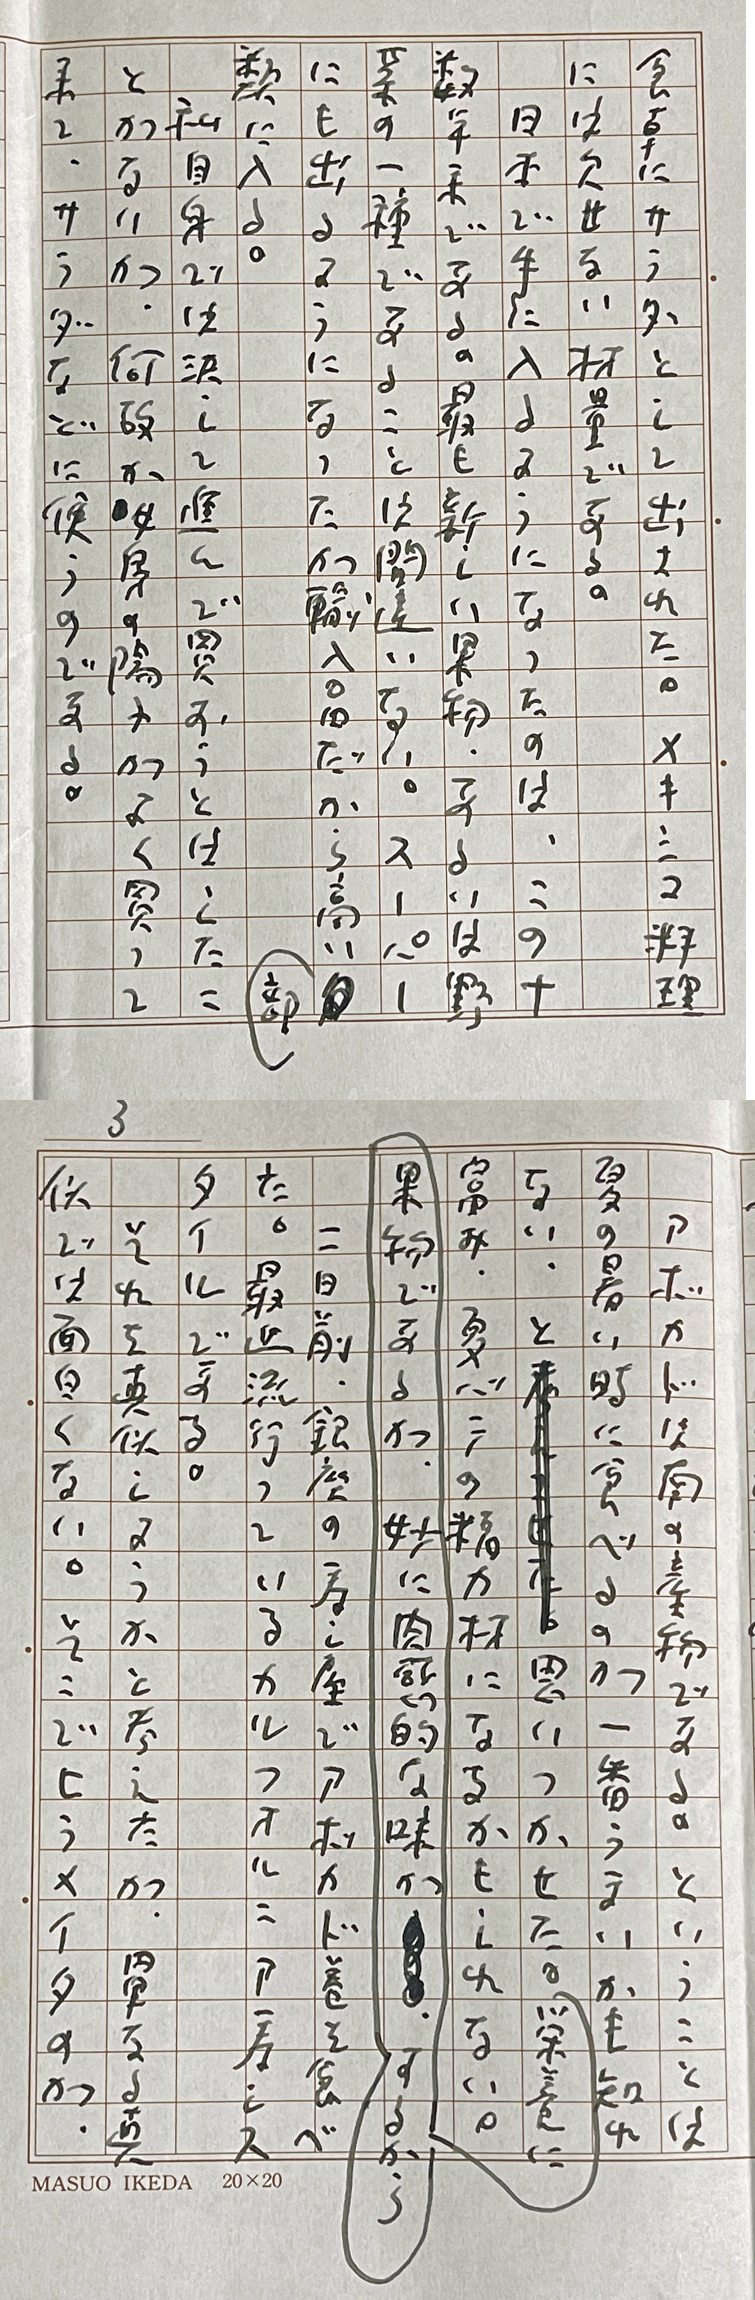 食前にサラダとして出された。メキシコ料理
には欠せない材量である。
日本で手に入るようになったのは、この十
数年来である。最も新しい果物、あるいは野
菜の一種であることは間違いない。スーパー
にも出るようになったが輸入品だから高い部
類に入る。
私自身では決して進んで買おうとはしたこ
とがないが、何故か女房の陽子がよく買って
来て、サラダなどに使うのである。
3
アボカドは南の産物である。ということは
夏の暑い時に食べるのが一番うまいかも知れ
ない、と思いつかせた。栄養に
富み、夏バテの精力材になるかもしれない。
果物であるが、妙に肉感的な味が、するから
二日前、銀座の寿し屋でアボカド巻を食べ
た。最近流行っているカルフォルニア寿しス
タイルである。
それを真似しようかと考えたが、単なる真
似では面白くない。そこでヒラメイタのが、
MASUO IKEDA 20×20